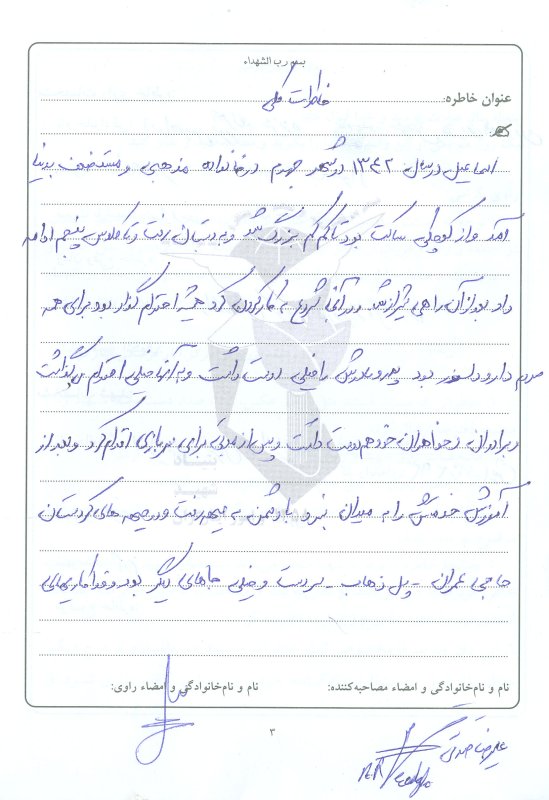 بسم رب الشهداء
عنوان خاطره: خاطرات کلی
اسماعیل در سال ۱۳۴۲ در شهر جهرم در خانواده مذهبی و مستضعف بدنیا
آمد و از کوچکی ساکت بود تا کم کم بزرگ شد و به دبستان رفت و تا کلاس پنجم ادامه
داد بعد از آن راهی شیراز شد و در آنجا شروع به کار کردن کرد همیشه احترام گذار بود برای همه
مردم دار و دلسوز بود پدر و مادرش را خیلی دوست داشت و به آنها خیلی احترام می گذاشت
و برادران و خواهران خود هم دوست داشت و پس از مدتی برای سربازی اقدام کرد و بعد از
آموزش خودش را به میدان نبرد با دشمن به جبهه رفت و در جبهه های کردستان
حاجی عمران - پل ذهاب - سردشت و خیلی جاهای دیگر بود و فداکاریهای
نام و نام‌خانوادگی و امضاء مصاحبه‌کننده:
نام و نام‌خانوادگی و امضاء راوی:
علیرضا
۳